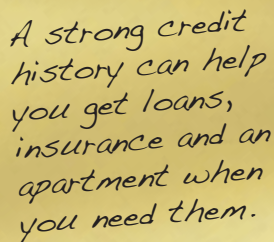 A strong credit
history can help
you get loans,
insurance and an
apartment when
you need them.